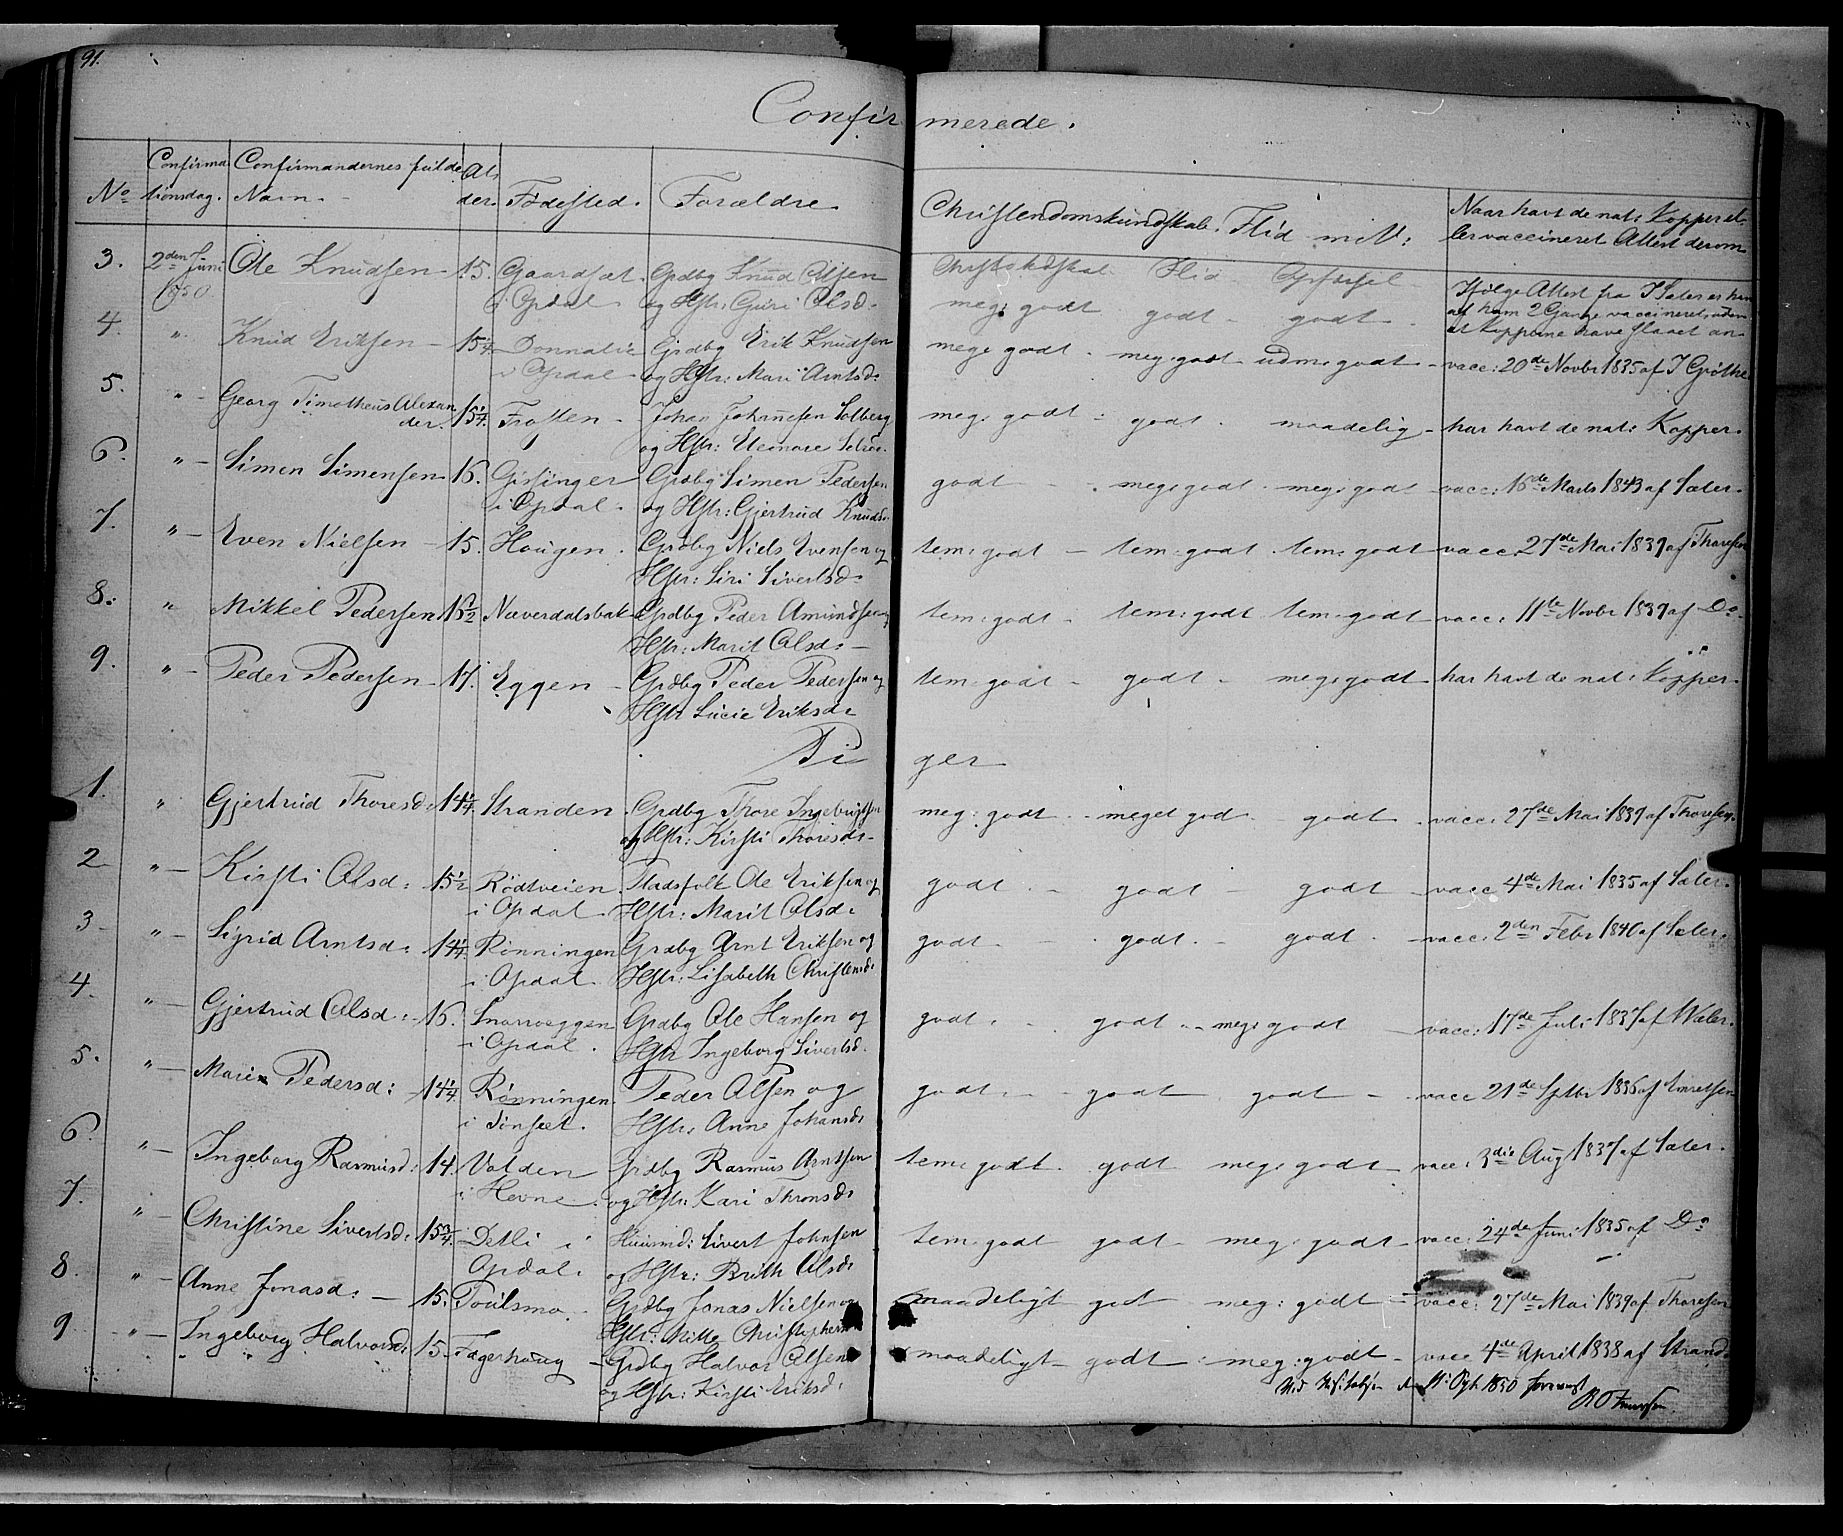 91.
Confirmerede.
No
Confirmationsdag.
Confirmandernes fulde Navn.
Alder.
Fødested.
Forældre.
Christendomskundskab. Flid m. V:
Naar havt de nat: Kopper eller vaccineret Attest derom
3. 2den Juni 1850. Ole Knudsen 15. Gaardsæt Grdbg Knud Olsen
i Opdal og Hstr: Guri Olsd:
meg: godt godt godt
Ifølge Attest fra Sæter er han
2 Gange vaccineret, uden
at Kopperne have slaaet an
4. " Knud Eriksen 15 1/4 Donnalie Grdbg Erik Knudsen
i Opdal og Hstr: Mari Arntsd:
meget godt meg: godt udm: godt vacc: 20de Novbr 1835 af I Grøthe
5. " Georg Timotheus Alexander. 15 1/4. Trotten Johan Johannesen Solberg
og Hstr:
meg: godt godt maadelig har havt de nat: Kopper.
6. " Simen Simensen 16. Gissinger Grdbg Simen Pedersen
i Opdal og Hstr: Gjertrud Knudsd:
godt meg: godt meg: godt vacc: 16de Marts 1843 af Sæter.
7. " Even Nielsen 15. Hougen. Grdbg Niels Evensen og
Hstr: Siri Sivertsd:
tem: godt tem: godt tem: godt vacc: 27de Mai 1839 af Thoresen
8. " Mikkel Pedersen 16 1/2 Næverdalsbak Grdbg Peder Amundsen og
Hstr: Marit Olsd:
tem: godt tem: godt tem: godt vacc: 11te Novbr 1839 af Do
9. " Peder Pedersen 17. Eggen Grdbg Peder Pedersen og
Hstr Lucie Eriksd:
tem: godt godt meg: godt har havt de nat: Kopper.
Piger
1. " Gjertrud Thoresd: 14 1/4 Stranden Grdbg Thore Ingebrigtsen
og Hstr: Kirsti Thoresd:
meg: godt meget god godt vacc: 27de Mai 1839 af Thoresen.
2 " Kirsti Olsd: 15 1/2 Rödtveien Pladsfolk Ole Eriksen og
i Opdal Hstr: Marit Olsd:
godt godt godt vacc 4de Mai 1835 af Sæter.
3 " Sigrid Arntsd: 14 1/4 Rönningen Grdbg Arnt Eriksen og
i Opdal Hstr: Lisabeth Christensd:
godt godt godt vacc: 2den Febr 1840 af Sæter.
4. " Gjertrud Olsd: 16. Snarveggen Grdbg Ole Hansen og
i Opdal. Hstr Ingeborg Sivertsd.
godt godt meg: godt vacc: 17de Juli 1837 af
5. " Mari Pedersd: 14 1/4 Rønningen Peder Olsen og
i Tönset. Hstr: Anne Johansd:
godt godt godt vacc 21de Sptbr 1836 af
6. " Ingeborg Rasmusd: 14. Volden Grdbg Rasmus Arntsen
i Hevne. og Hstr: Kari Thronsd:
tem: godt godt meg: godt vacc: 3die Aug 1837 af Sæter.
7. " Christine Sivertsd: 15 3/4. Detli i Huusmd: Sivert Johnsen
Opdal. og Hstr: Brith Olsd:
tem: godt godt meg: godt vacc: 24de Juni 1835 af Do
8. " Anne Jonasd: 15. Toulsmo. Grdbg Jonas Nielsen og
Hstr: Mille Christophersd
maadeligt godt meg: godt vacc: 27de Mai 1839 af Thoresen
9 " Ingeborg Halvorsd: 15. Fagerhaug Grdbg Halvor Olsen
og Hstr: Kirsti Eriksd:
maadeligt godt meg: godt vacc 4de April 1838 af Strand
1850 forevist